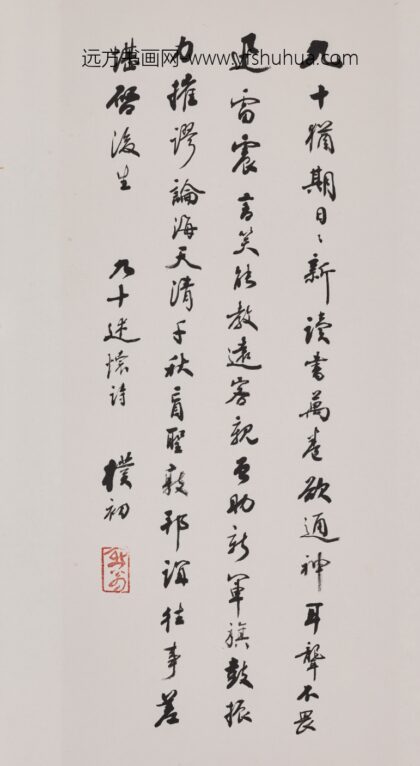 远方书画网 www.yfshuhua.com
九十猶期日〻新讀書萬卷欲通神耳聾不畏
迅雷震言笑能教遠客親曾助新軍旗鼓振
力摧謬論海天清千秋盲聖敦邦誼往事差
堪啓後生 九十述懷詩 樸初